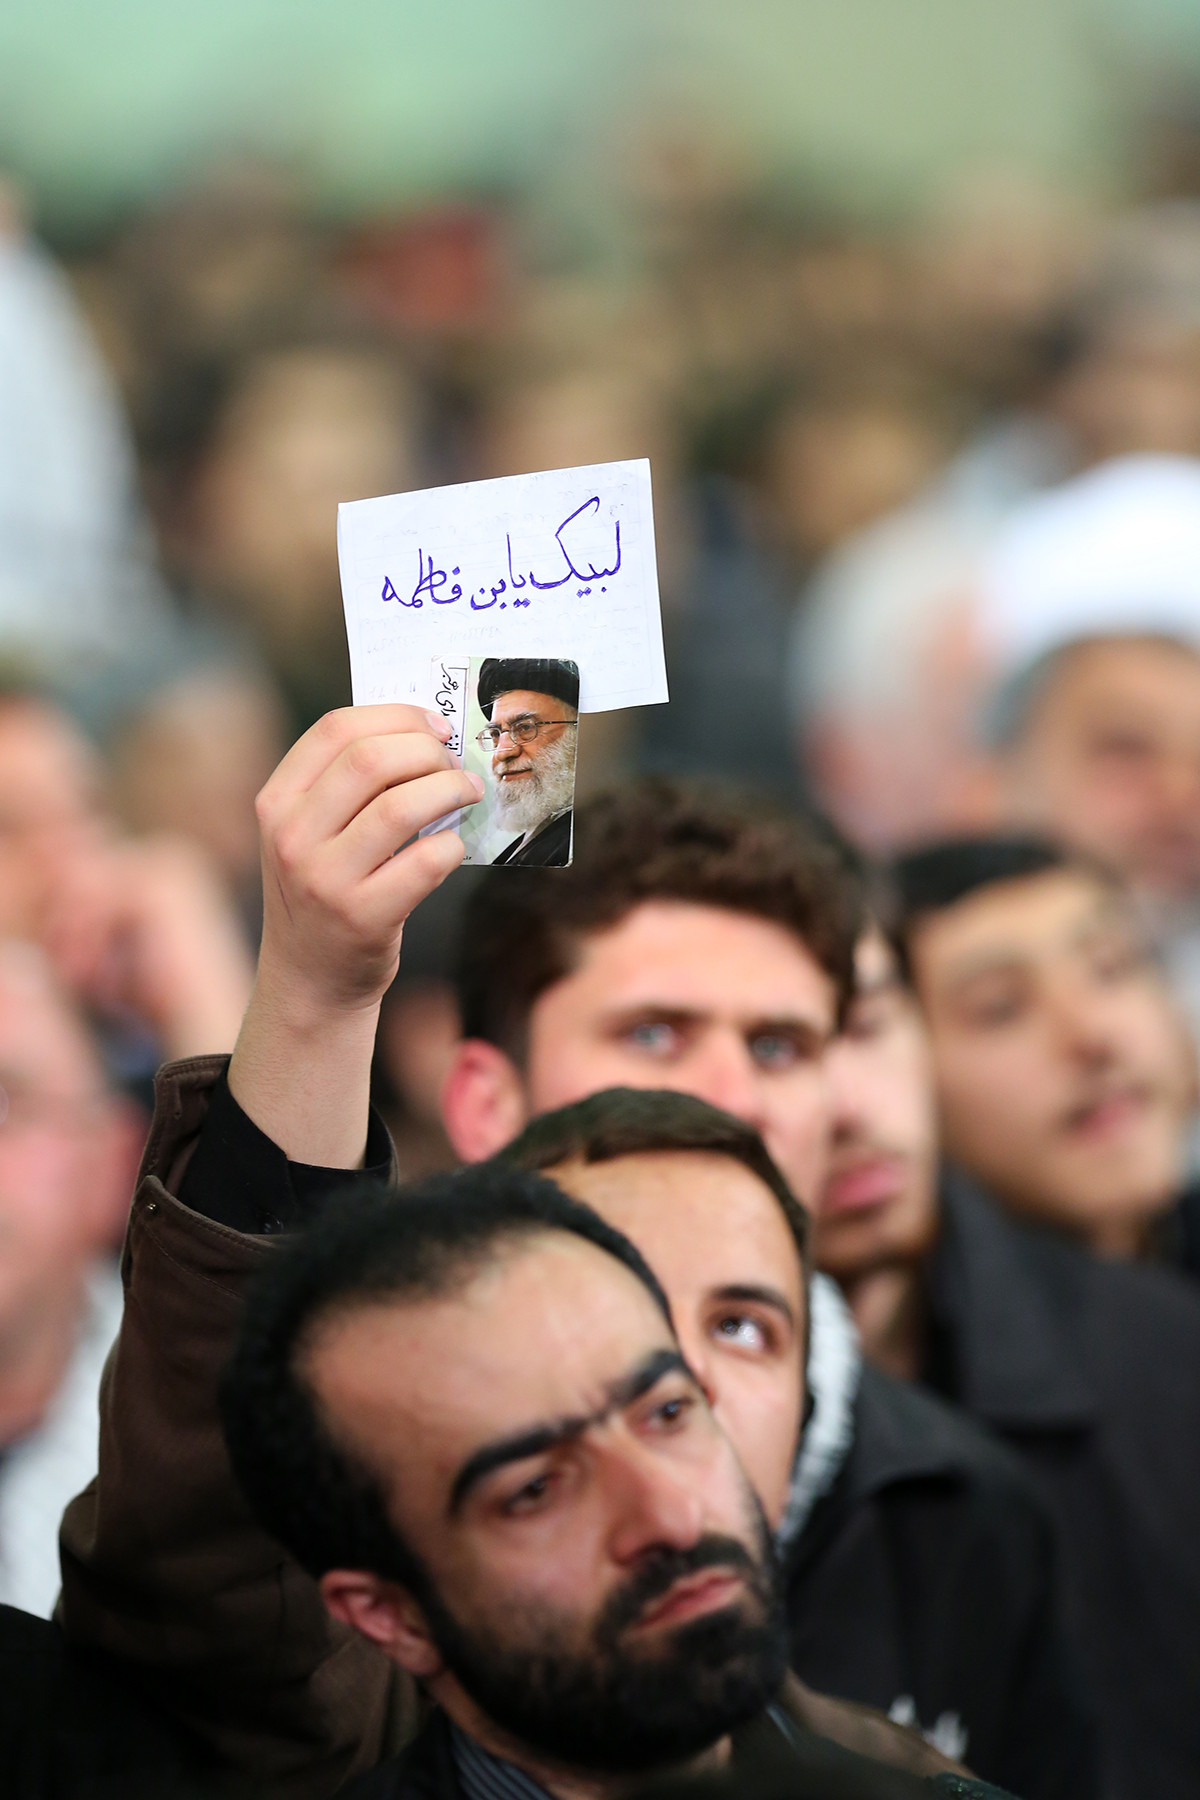 لبیک یابن فاطمه